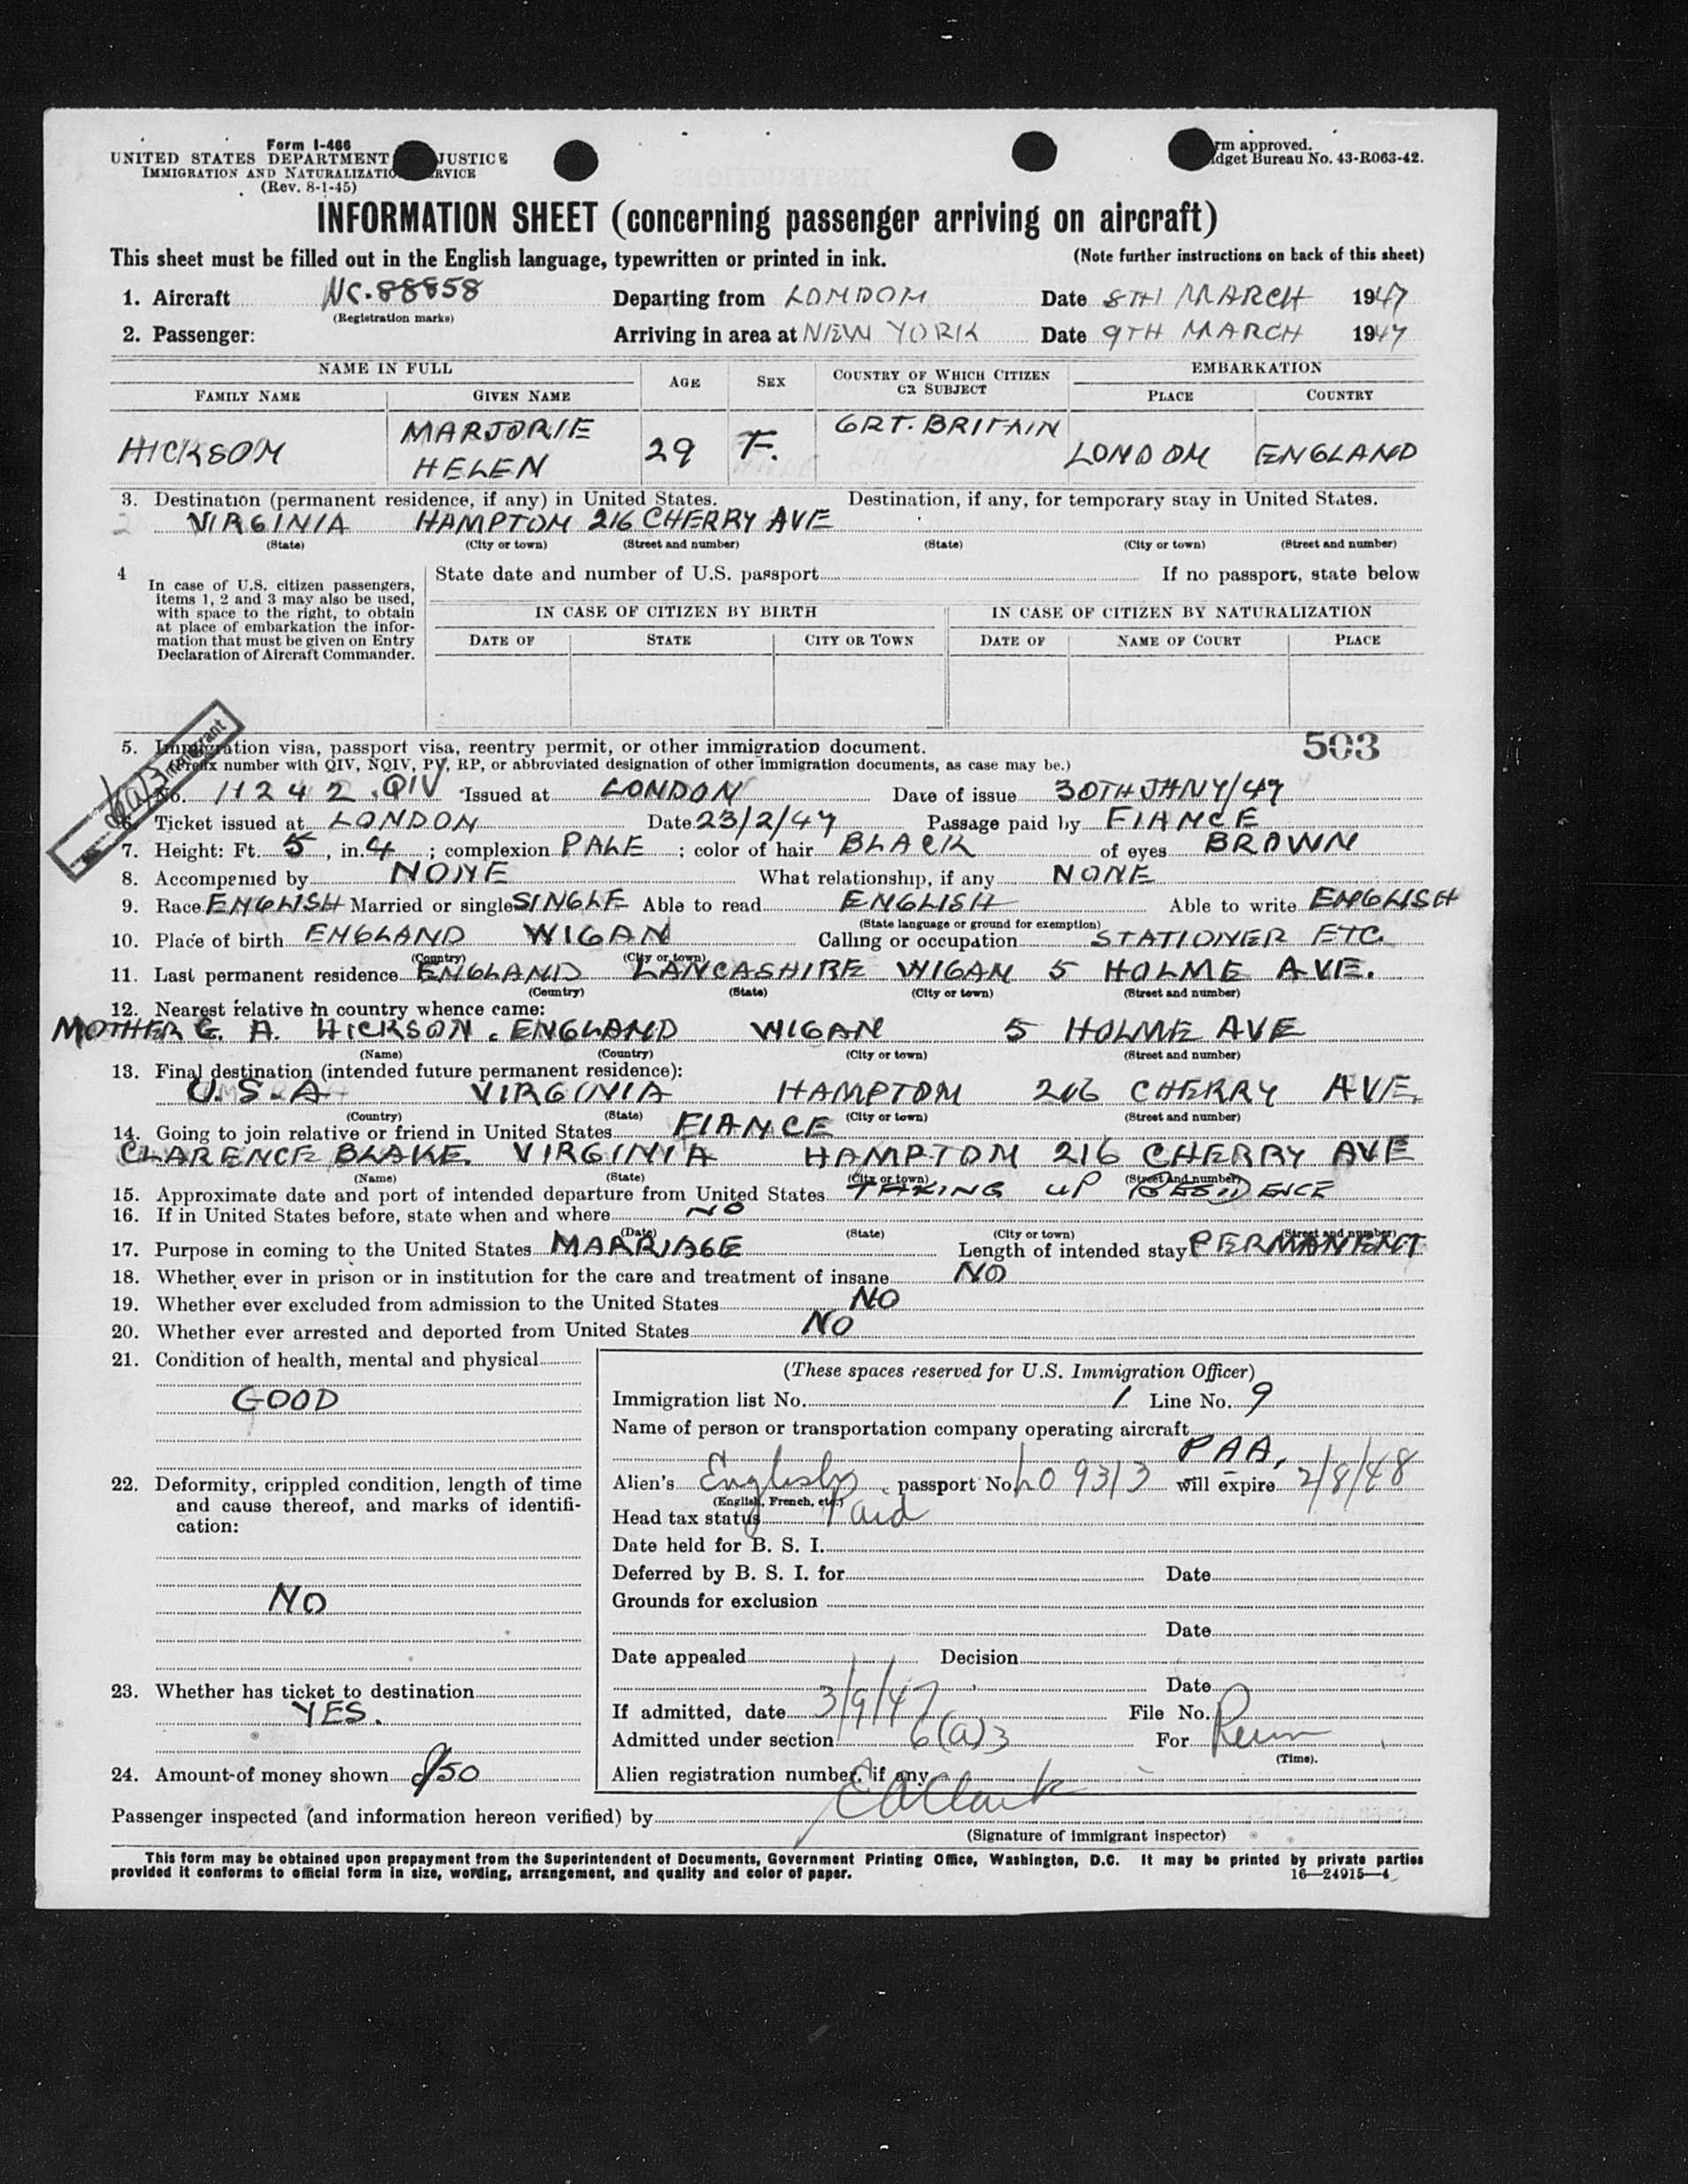 Form I-466
UNITED STATES DEPARTMENT JUSTICE
IMMIGRATION AND NATURALIZATIO RVICE
(Rev. 8-1-45)
rm approved.
dget Bureau No. 43-R063-42.
INFORMATION SHEET (concerning passenger arriving on aircraft)
This sheet must be filled out in the English language, typewritten or printed in ink. (Note further instructions on back of this sheet)
1. Aircraft NC.88858 Departing from LONDON Date 8TH MARCH 1947
(Registration marks)
2. Passenger: Arriving in area at NEW YORK Date 9TH MARCH 1947
NAME IN FULL AGE SEX COUNTRY OF WHICH CITIZEN OR SUBJECT EMBARKATION
FAMILY NAME GIVEN NAME PLACE COUNTRY
HICKSON MARJORIE HELEN 29 F. GRT. BRITAIN LONDON ENGLAND
3. Destination (permanent residence, if any) in United States. Destination, if any, for temporary stay in United States.
VIRGINIA HAMPTON 216 CHERRY AVE
(State) (City or town) (Street and number) (State) (City or town) (Street and number)
4 In case of U.S. citizen passengers, items 1, 2 and 3 may also be used, with space to the right, to obtain at place of embarkation the information that must be given on Entry Declaration of Aircraft Commander.
State date and number of U.S. passport If no passport, state below
IN CASE OF CITIZEN BY BIRTH IN CASE OF CITIZEN BY NATURALIZATION
DATE OF STATE CITY OR TOWN DATE OF NAME OF COURT PLACE
5. Immigration visa, passport visa, reentry permit, or other immigration document. 503
(Prefix number with QIV, NQIV, PV, RP, or abbreviated designation of other immigration documents, as case may be.)
No. 11242.QIV Issued at LONDON Date of issue 30TH JANY/47
6. Ticket issued at LONDON Date 23/2/47 Passage paid by FIANCE
7. Height: Ft. 5, in. 4; complexion PALE; color of hair BLACK of eyes BROWN
8. Accompanied by NONE What relationship, if any NONE
9. Race ENGLISH Married or single SINGLE Able to read ENGLISH Able to write ENGLISH
(State language or ground for exemption)
10. Place of birth ENGLAND WIGAN Calling or occupation STATIONER ETC.
(Country) (City or town)
11. Last permanent residence ENGLAND LANCASHIRE WIGAN 5 HOLME AVE.
(Country) (State) (City or town) (Street and number)
12. Nearest relative in country whence came:
MOTHER G. A. HICKSON. ENGLAND WIGAN 5 HOLME AVE
(Name) (Country) (City or town) (Street and number)
13. Final destination (intended future permanent residence):
U.S.A VIRGINIA HAMPTON 216 CHERRY AVE.
(Country) (State) (City or town) (Street and number)
14. Going to join relative or friend in United States FIANCE
CLARENCE BLAKE VIRGINIA HAMPTON 216 CHERRY AVE
(Name) (State) (City or town) (Street and number)
15. Approximate date and port of intended departure from United States TAKING UP RESIDENCE
16. If in United States before, state when and where NO
(Date) (State) (City or town) (Street and number)
17. Purpose in coming to the United States MARRIAGE Length of intended stay PERMANENT
18. Whether ever in prison or in institution for the care and treatment of insane NO
19. Whether ever excluded from admission to the United States NO
20. Whether ever arrested and deported from United States NO
21. Condition of health, mental and physical
GOOD
22. Deformity, crippled condition, length of time and cause thereof, and marks of identification:
NO
23. Whether has ticket to destination
YES.
24. Amount of money shown £50
(These spaces reserved for U.S. Immigration Officer)
Immigration list No. 1 Line No. 9
Name of person or transportation company operating aircraft
PAA.
Alien's English passport No. will expire 2/8/48
(English, French, etc.)
Head tax status Paid
Date held for B. S. I.
Deferred by B. S. I. for Date
Grounds for exclusion
Date
Date appealed Decision
Date
If admitted, date 3/9/47 File No.
Admitted under section 6(a)3 For Perm
(Time).
Alien registration number, if any
Passenger inspected (and information hereon verified) by E A Clark
(Signature of immigrant inspector)
This form may be obtained upon prepayment from the Superintendent of Documents, Government Printing Office, Washington, D.C. It may be printed by private parties
provided it conforms to official form in size, wording, arrangement, and quality and color of paper. 16—24915—4